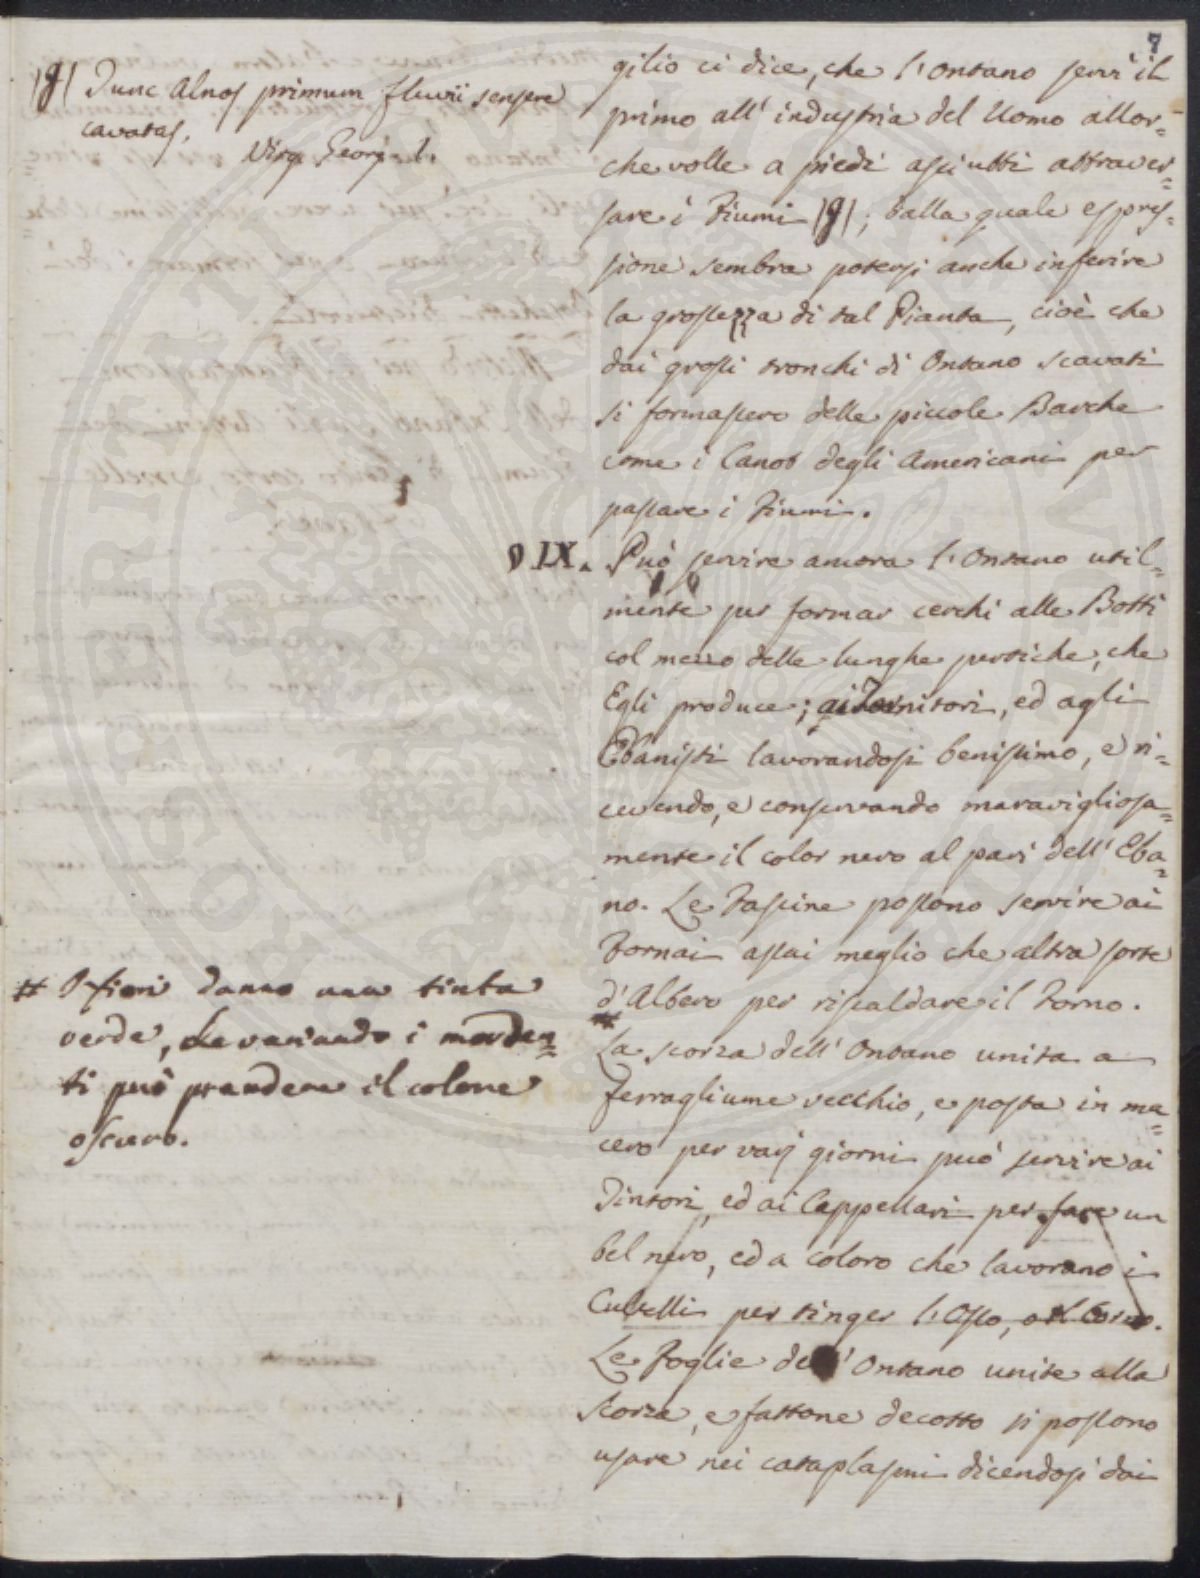 7
|g| Tunc Alnos primum fluvii sensere
cavatas.
Virg. Georg. l.
gilio ci dice, che l'ontano servì il
primo all'industria del Uomo allor=
che volle a piedi asciutti attraver=
sare i Fiumi |g|; dalla quale espres=
sione sembra potersi anche inferire
la grossezza di tal Pianta, cioè che
dai grossi tronchi di Ontano scavati
si formassero delle piccole Barche
come i Canot degli Americani per
passare i Fiumi.
§ IX. Può servire ancora l'Ontano util=
mente per formar cerchi alle Botti
col mezzo delle lunghe pertiche, che
Egli produce; ai Tornitori, ed agli
Ebanisti lavorandosi benissimo, e ri=
cevendo, e conservando maravigliosa=
mente il color nero al pari dell'Eba=
no. Le Fascine possono servire ai
Fornai assai meglio che altra sorte
d'Albero per riscaldare il Forno.
# I fiori danno una tinta
verde, che variando i morden=
ti può prendere il colore
oscuro.
#
La scorza dell'Ontano unita a
ferragliume vecchio, e posta in ma=
cero per varj giorni può servire ai
Tintori, ed ai Cappellari per fare un
bel nero, ed a coloro che lavorano i
Cultelli per tinger l'Osso, o il Corno.
Le Foglie dell'Ontano unite alla
Scorza, e fattone decotto si possono
usare nei cataplasmi dicendosi dai